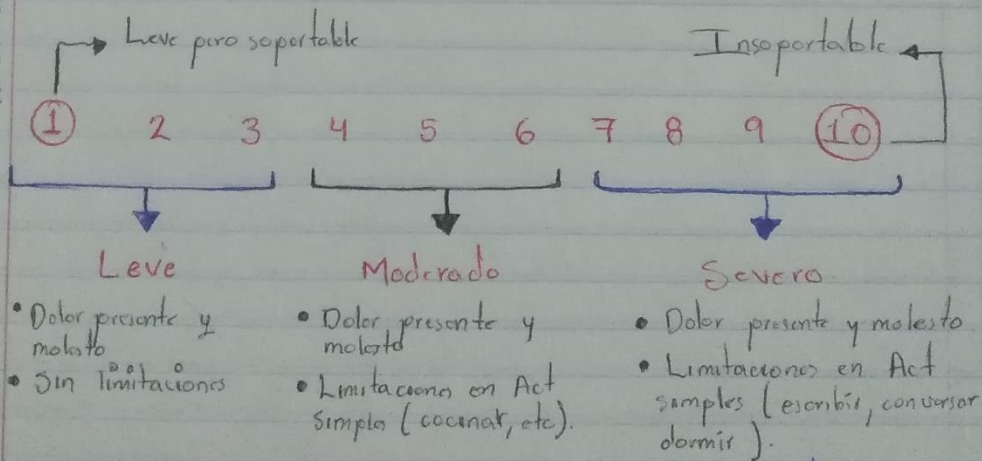 Leve pero soportable
Insoportable
1 2 3 4 5 6 7 8 9 10
Leve
Moderado
Severo
• Dolor presente y
molesto
• Sin limitaciones
• Dolor presente y
molesto
• Limitaciones en Act
simples (cocinar, etc).
• Dolor presente y molesto
• Limitaciones en Act
simples (escribir, conversar
dormir).